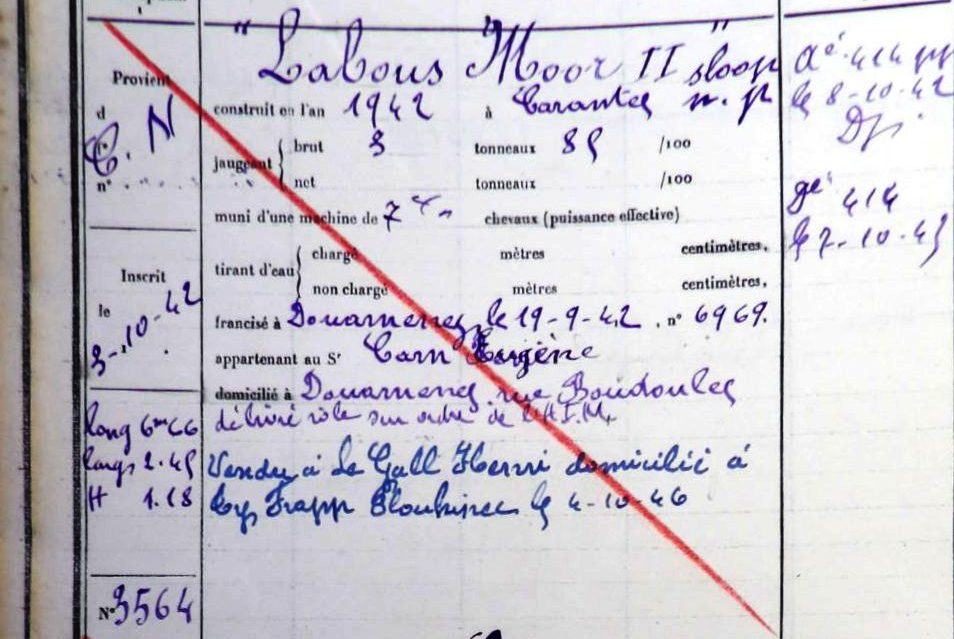 Provient
d
C. N
n°
Inscrit
le
3-10-42
long 6m66
large 2.45
H 1.18
N° 3564
"Labous Moor II" sloop
construit en l'an 1942 à Carantec n. p
jaugeant { brut 3 tonneaux 85 /100
net tonneaux /100
muni d'une machine de 7 cv chevaux (puissance effective)
tirant d'eau { chargé mètres centimètres.
non chargé mètres centimètres.
francisé à Douarnenez, le 19-9-42. n° 6969.
appartenant au Sr Carn Eugène
domicilié à Douarnenez rue Boudoulec
délivré rôle sur ordre de
Vendu à Le Gall Henri domicilié à
Plouhinec le 4-10-46
Dé 414
le 8-10-42
gé 414
le 7-10-45